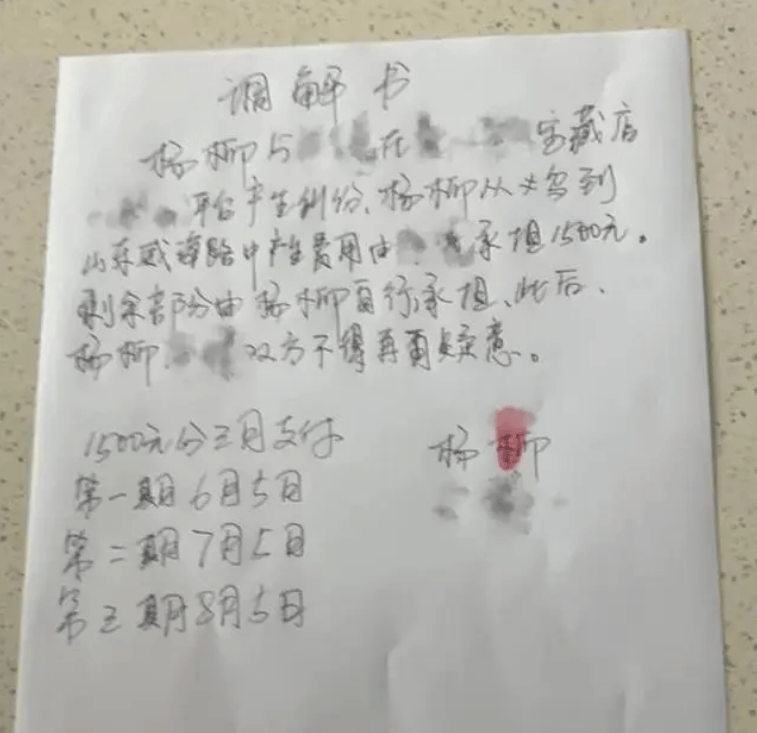 调解书
杨柳与 在 宝藏店
平台产生纠纷、杨柳从义乌到
山东威海路中产生费用由 承担1500元。
剩余部分由杨柳自行承担、此后、
杨柳、 双方不得再有疑意。
1500元分三月支付
第一期6月5日
第二期7月5日
第三期8月5日
杨柳